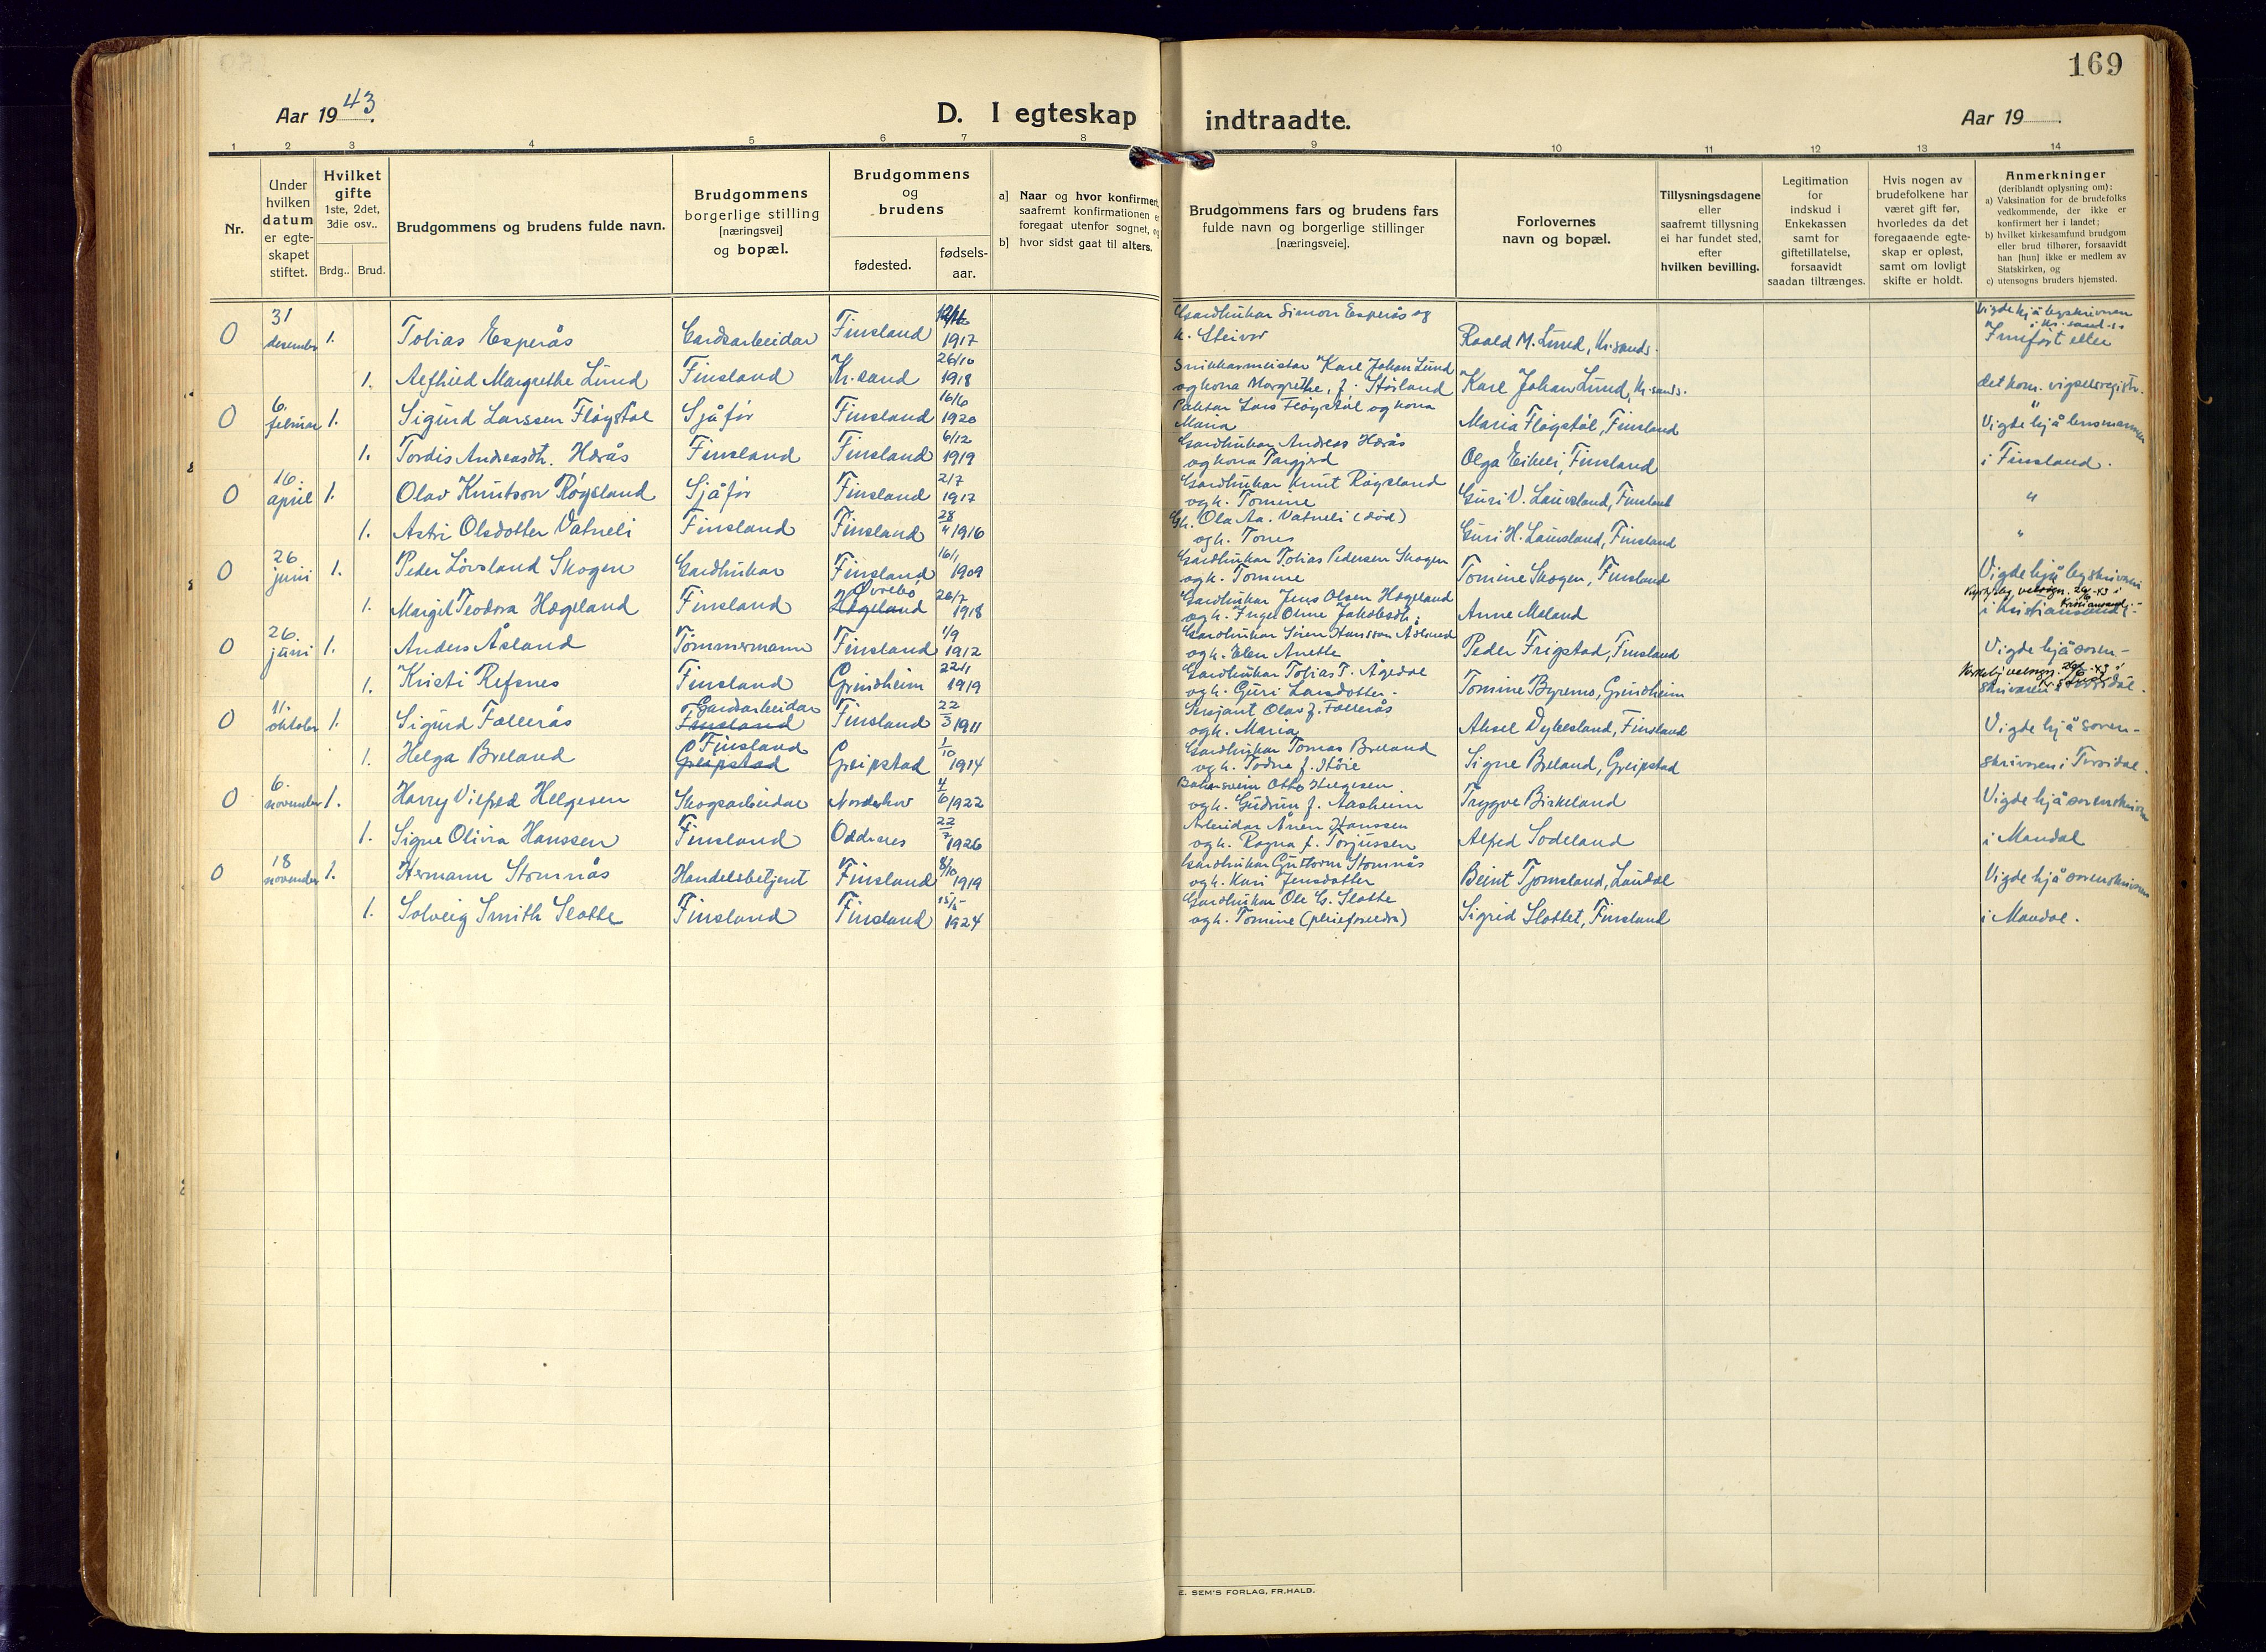 169
Aar 1943.
D. I egteskap indtraadte.
Aar 19 .
1 2 3 4 5 6 7 8 9 10 11 12 13 14
Nr.
Under hvilken datum er egte-skapet stiftet.
Hvilket gifte 1ste, 2det, 3die osv..
Brdg.. Brud.
Brudgommens og brudens fulde navn.
Brudgommens borgerlige stilling [næringsvei] og bopæl.
Brudgommens og brudens
fødested. fødsels-aar.
a) Naar og hvor konfirmert, saafremt konfirmationen er foregaat utenfor sognet, og
b) hvor sidst gaat til alters.
Brudgommens fars og brudens fars fulde navn og borgerlige stillinger [næringsveie].
Forlovernes navn og bopæl.
Tillysningsdagene eller saafremt tillysning ei har fundet sted, efter hvilken bevilling.
Legitimation for indskud i Enkekassen samt for giftetillatelse, forsaavidt saadan tiltrænges.
Hvis nogen av brudefolkene har været gift før, hvorledes da det foregaaende egte-skap er opløst, samt om lovligt skifte er holdt.
Anmerkninger (deriblandt oplysning om):
a) Vaksination for de brudefolks vedkommende, der ikke er konfirmert her i landet;
b) hvilket kirkesamfund brudgom eller brud tilhører, forsaavidt han [hun] ikke er medlem av Statskirken, og
c) utensogns bruders hjemsted.
0 31 desember 1. Tobias Esperås Gardsarbeidar Finsland 1917 Gardbrukar Simon Esperås og k. Steivor Roald M. Lund, Kr.sand. Vigde hjå byskrivaren i Kr.sand-S. Innført etter
1. Alfhild Margrethe Lund Finsland Kr.sand 26/10 1918 Snikkarmeistar Karl Johan Lund og kona Margrethe, f. Støiland Karl Johan Lund, Kr.sand. det kom. vigselsregistr.
0 6. februar 1. Sigurd Larssen Fløystøl Sjåfør Finsland 16/6 1920 Paktar Lars Fløystøl og kona Maria Maria Fløystøl, Finsland Vigde hjå lensmannen
1. Tordis Andreasdt. Hærås Finsland Finsland 6/12 1919 Gardbrukar Andreas Hærås og kona Targjerd Olga Eikeli, Finsland i Finsland.
0 16. april 1. Olav Knutson Røysland Sjåfør Finsland 2/7 1917 Gardbrukar Knut Røysland og k. Tomine Guri V. Lauvsland, Finsland "
1. Astri Olsdotter Vatneli Finsland Finsland 28/4 1916 Gk. Ola Aa. Vatneli (død) og k. Tones Guri H. Lauvsland, Finsland "
0 26 juni 1. Peder Lövsland Skogen Gardbrukar Finsland 16/1 1909 Gardbrukar Tobias Pedersen Skogen og k. Tomine Tomine Skogen, Finsland Vigde hjå byskrivaren
1. Margit Teodora Hægeland Finsland Øvrebø Hægeland 26/7 1918 Gardbrukar Jens Olsen Hægeland og k. Inger Oline Jakobsdtr. Anne Meland i Kristiansand.
0 26. juni 1. Anders Åsland Tømmermann Finsland 1/9 1912 Gardbrukar Sören Hansson Åsland og k. Elen Anette Peder Frigstad, Finsland Vigde hjå soren-
1. Kristi Refsnes Finsland Grindheim 22/1 1919 Gardbrukar Tobias T. Ågedal og k. Guri Larsdotter. Tomine Byremo, Grindheim skrivaren i
0 11. oktober 1. Sigurd Fallerås Gardsarbeidar Finsland Finsland 22/3 1911 Sersjant Olav J. Fallerås og k. Maria Aksel Dybesland, Finsland Vigde hjå soren-
1. Helga Breland Finsland Greipstad Greipstad 1/10 1914 Gardbrukar Tomas Breland og k. Todne f. Støie Signe Breland, Greipstad skrivaren i Torridal.
0 6. november 1. Harry Vilfred Helgesen Skogsarbeidar Norderhov 4/6 1922 Bakarsvein Otto Helgesen og k. Gudrun f. Aasheim Trygve Birkeland Vigde hjå sorenskrivaren
1. Signe Olivia Hanssen Finsland Oddernes 22/7 1926 Arbeidar Ånen Hanssen og k. Ragna f. Torjussen Alfred Sodeland i Mandal
0 18 november 1. Hermann Stomnås Handelsbetjent Finsland 8/10 1919 Gardbrukar Guttorm Stomnås og k. Kari Jensdotter Beint Tjomsland, Laudal Vigde hjå sorenskrivaren
1. Solveig Smith Slotte Finsland Finsland 15/5 1924 Gardbrukar Ole G. Slotte og k. Tomine (pleieforeldra) Sigrid Slottet, Finsland i Mandal.
E. SEM'S FORLAG, FR.HALD.